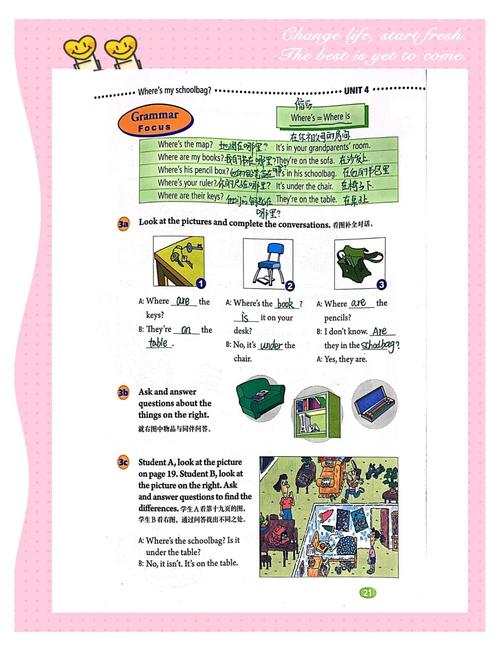 Change life, start fresh.
The best is yet to come.
Where's my schoolbag?
UNIT 4
Grammar
Focus
缩写
Where's = Where is
在你祖父母的房间
Where's the map? 地图在哪里? It's in your grandparents' room.
Where are my books? 我的书在哪里? They're on the sofa. 在沙发上
Where's his pencil box? in his schoolbag. 在他的书包里
Where's your ruler? 你的尺在哪里? It's under the chair. 在椅子下
Where are their keys? They're on the table. 在桌上
哪里?
3a Look at the pictures and complete the conversations. 看图补全对话。
1
2
3
A: Where are the
keys?
B: They're on the
table.
A: Where's the book?
is it on your
desk?
B: No, it's under the
chair.
A: Where are the
pencils?
B: I don't know. Are
they in the schoolbag?
A: Yes, they are.
3b Ask and answer
questions about the
things on the right.
就右图中物品与同伴问答。
3c Student A, look at the picture
on page 19. Student B, look at
the picture on the right. Ask
and answer questions to find the
differences. 学生A看第十九页的图,
学生B看右图,通过问答找出不同之处。
A: Where's the schoolbag? Is it
under the table?
B: No, it isn't. It's on the table.
21